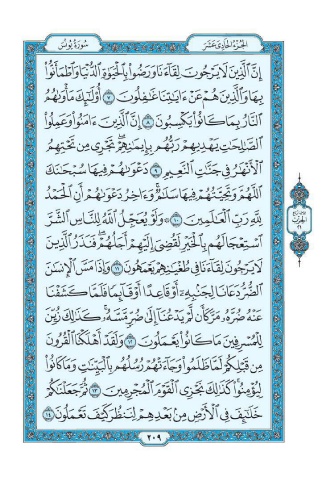 الجزء الحادي عشر
سورة يونس
إِنَّ ٱلَّذِينَ لَا يَرْجُونَ لِقَآءَنَا وَرَضُوا۟ بِٱلْحَيَوٰةِ ٱلدُّنْيَا وَٱطْمَأَنُّوا۟
بِهَا وَٱلَّذِينَ هُمْ عَنْ ءَايَٰتِنَا غَٰفِلُونَ ٧ أُو۟لَٰٓئِكَ مَأْوَىٰهُمُ
ٱلنَّارُ بِمَا كَانُوا۟ يَكْسِبُونَ ٨ إِنَّ ٱلَّذِينَ ءَامَنُوا۟ وَعَمِلُوا۟
ٱلصَّٰلِحَٰتِ يَهْدِيهِمْ رَبُّهُم بِإِيمَٰنِهِمْ ۖ تَجْرِى مِن تَحْتِهِمُ
ٱلْأَنْهَٰرُ فِى جَنَّٰتِ ٱلنَّعِيمِ ٩ دَعْوَىٰهُمْ فِيهَا سُبْحَٰنَكَ
ٱللَّهُمَّ وَتَحِيَّتُهُمْ فِيهَا سَلَٰمٌ ۚ وَءَاخِرُ دَعْوَىٰهُمْ أَنِ ٱلْحَمْدُ
لِلَّهِ رَبِّ ٱلْعَٰلَمِينَ ١٠ ۞ وَلَوْ يُعَجِّلُ ٱللَّهُ لِلنَّاسِ ٱلشَّرَّ
ٱسْتِعْجَالَهُم بِٱلْخَيْرِ لَقُضِىَ إِلَيْهِمْ أَجَلُهُمْ ۖ فَنَذَرُ ٱلَّذِينَ
لَا يَرْجُونَ لِقَآءَنَا فِى طُغْيَٰنِهِمْ يَعْمَهُونَ ١١ وَإِذَا مَسَّ ٱلْإِنسَٰنَ
ٱلضُّرُّ دَعَانَا لِجَنۢبِهِۦٓ أَوْ قَاعِدًا أَوْ قَآئِمًا فَلَمَّا كَشَفْنَا
عَنْهُ ضُرَّهُۥ مَرَّ كَأَن لَّمْ يَدْعُنَآ إِلَىٰ ضُرٍّ مَّسَّهُۥ ۚ كَذَٰلِكَ زُيِّنَ
لِلْمُسْرِفِينَ مَا كَانُوا۟ يَعْمَلُونَ ١٢ وَلَقَدْ أَهْلَكْنَا ٱلْقُرُونَ
مِن قَبْلِكُمْ لَمَّا ظَلَمُوا۟ ۙ وَجَآءَتْهُمْ رُسُلُهُم بِٱلْبَيِّنَٰتِ وَمَا كَانُوا۟
لِيُؤْمِنُوا۟ ۚ كَذَٰلِكَ نَجْزِى ٱلْقَوْمَ ٱلْمُجْرِمِينَ ١٣ ثُمَّ جَعَلْنَٰكُمْ
خَلَٰٓئِفَ فِى ٱلْأَرْضِ مِنۢ بَعْدِهِمْ لِنَنظُرَ كَيْفَ تَعْمَلُونَ ١٤
٢٠٩